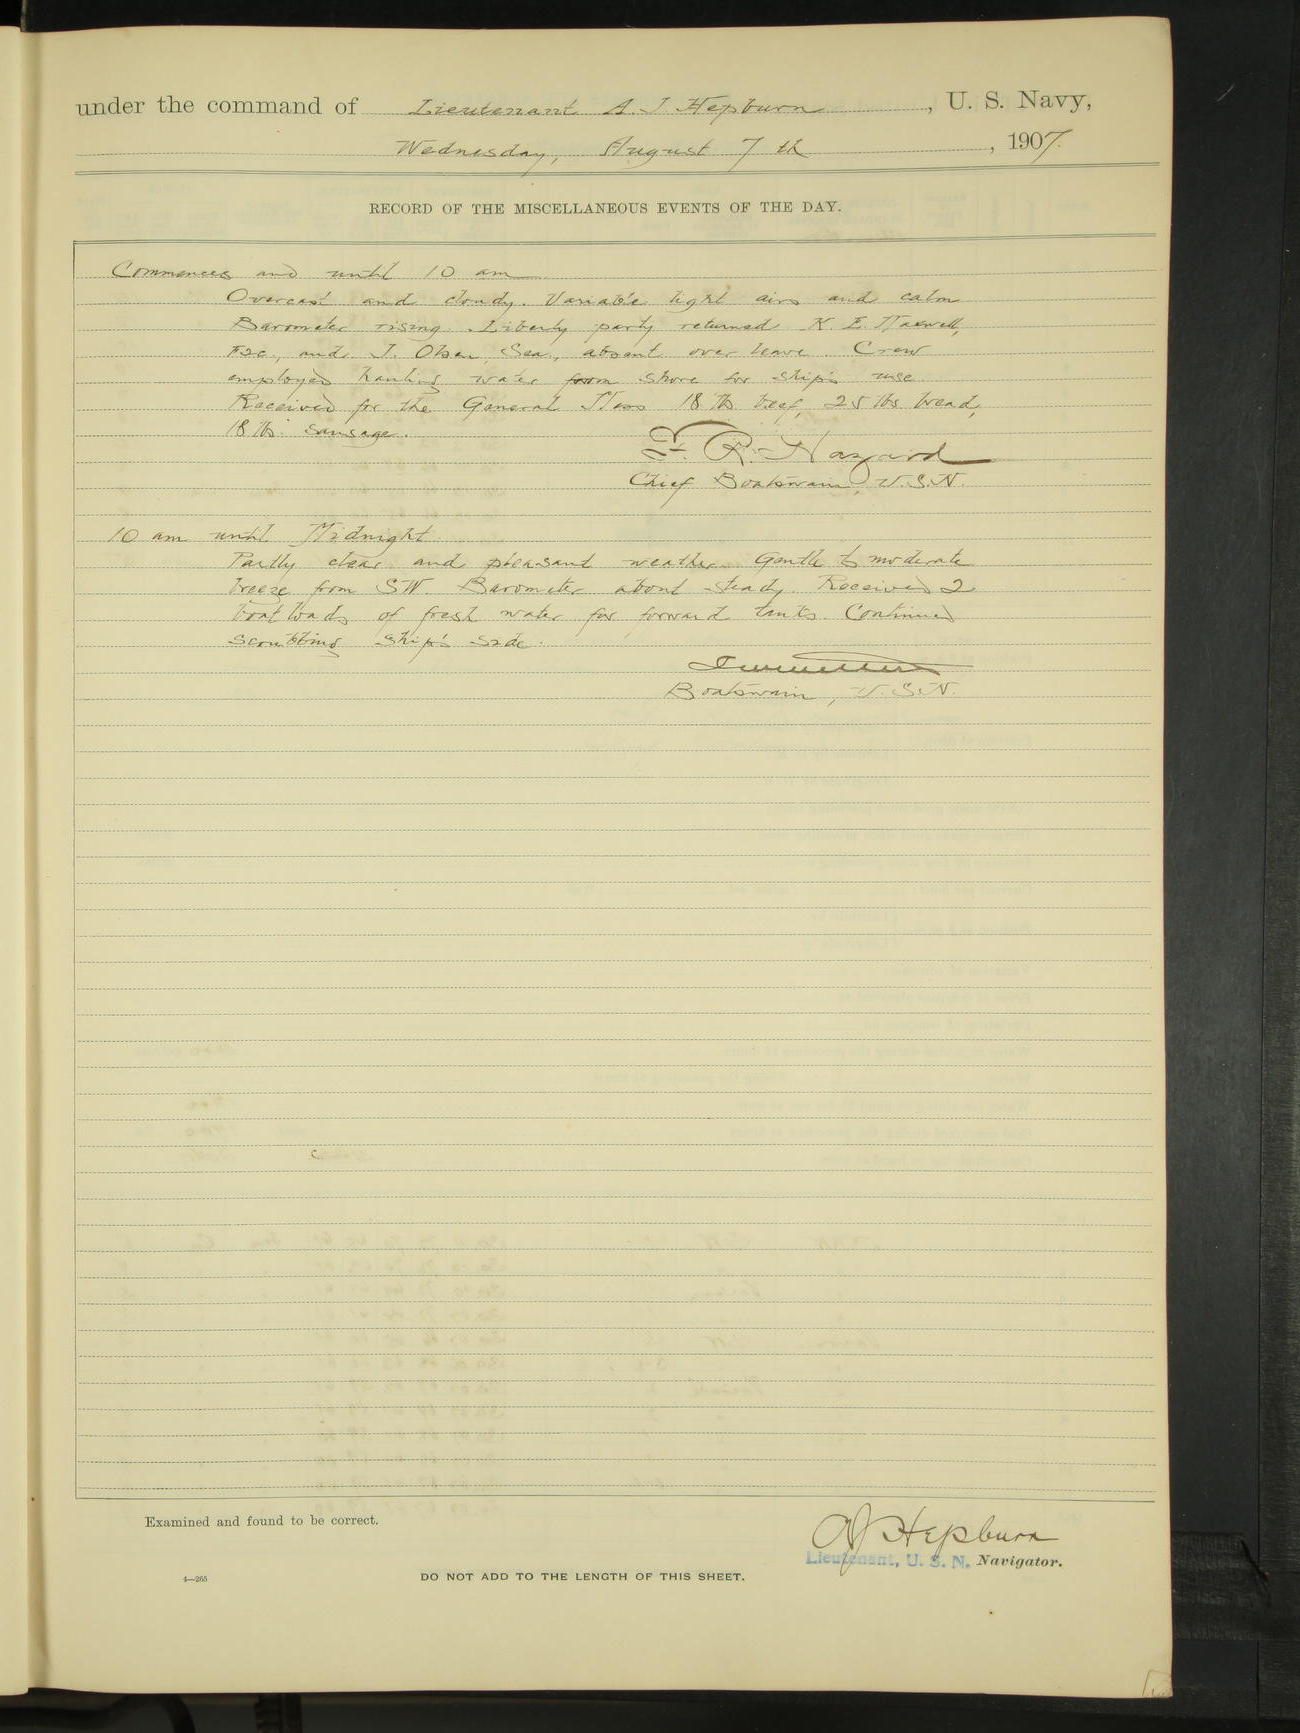 under the command of Lieutenant A. J. Hepburn, U. S. Navy,
Wednesday, August 7th, 1907.
RECORD OF THE MISCELLANEOUS EVENTS OF THE DAY.
Commences and until 10 am
Overcast and cloudy. Variable light airs and calm
Barometer rising. Liberty party returned K. E. Maxwell,
F2c., and J. Olsen, Sea., absent over leave. Crew
employed hauling water from shore for ship's use
Received for the General Mess 18 lbs. beef, 25 lbs bread,
18 lbs. sausage.
F. R. Hazard
Chief Boatswain, U.S.N.
10 am until Midnight.
Partly clear and pleasant weather. Gentle to moderate
breeze from SW. Barometer about steady. Received 2
boat loads of fresh water for forward tanks. Continued
scrubbing ship's side.
Boatswain, U.S.N.
Examined and found to be correct.
A J Hepburn
Lieutenant, U. S. N. Navigator.
4—265
DO NOT ADD TO THE LENGTH OF THIS SHEET.